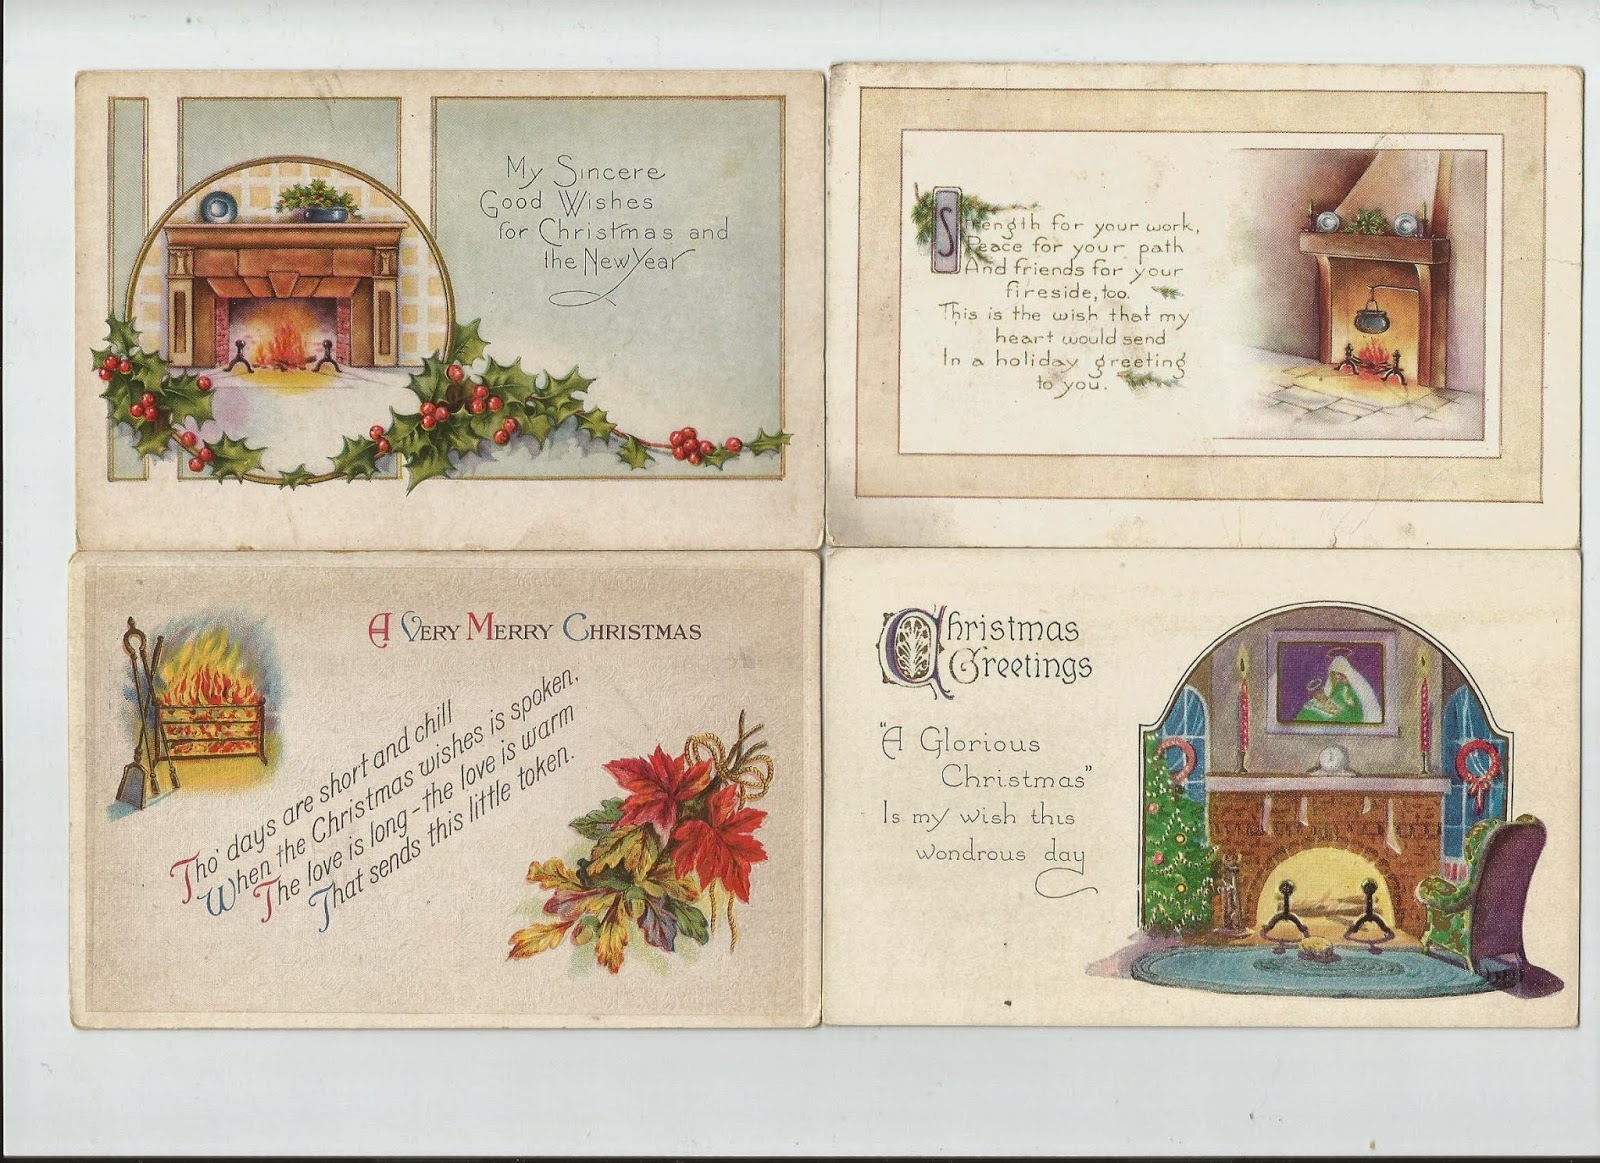 My Sincere
Good Wishes
for Christmas and
the New Year
Strength for your work,
Peace for your path
And friends for your
fireside, too.
This is the wish that my
heart would send
In a holiday greeting
to you.
A Very Merry Christmas
Tho' days are short and chill
When the Christmas wishes is spoken,
The love is long - the love is warm
That sends this little token.
Christmas
Greetings
"A Glorious
Christmas"
Is my wish this
wondrous day